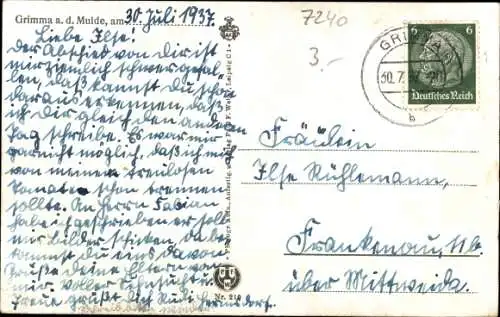 Grimma a. d. Mulde, am 30. Juli 1937.
Liebe Ilse!
der Abschied von Dir ist
mir ziemlich schwer gefal-
len, das kannst du schon
daraus erkennen, daß
ich dir gleich den anderen
Tag schreibe. Es war mir
garnicht möglich, daß ich mich
von meiner treulosen
Tomate schon trennen
sollte. An Herrn Fabian
habe ich geschrieben er soll
mir Bilder schicken, da be-
kommst du eins davon
Grüße deine Eltern von
mir. Voller Sehnsucht u.
Treue grüßt dich Rudi Hermsdorf.
Nr. 216
7240
3.-
GRIMMA
30.7.37
b
6
6
Deutsches Reich
Fräulein
Ilse Rühlemann,
Frankenau, Nb.
über Mittweida.